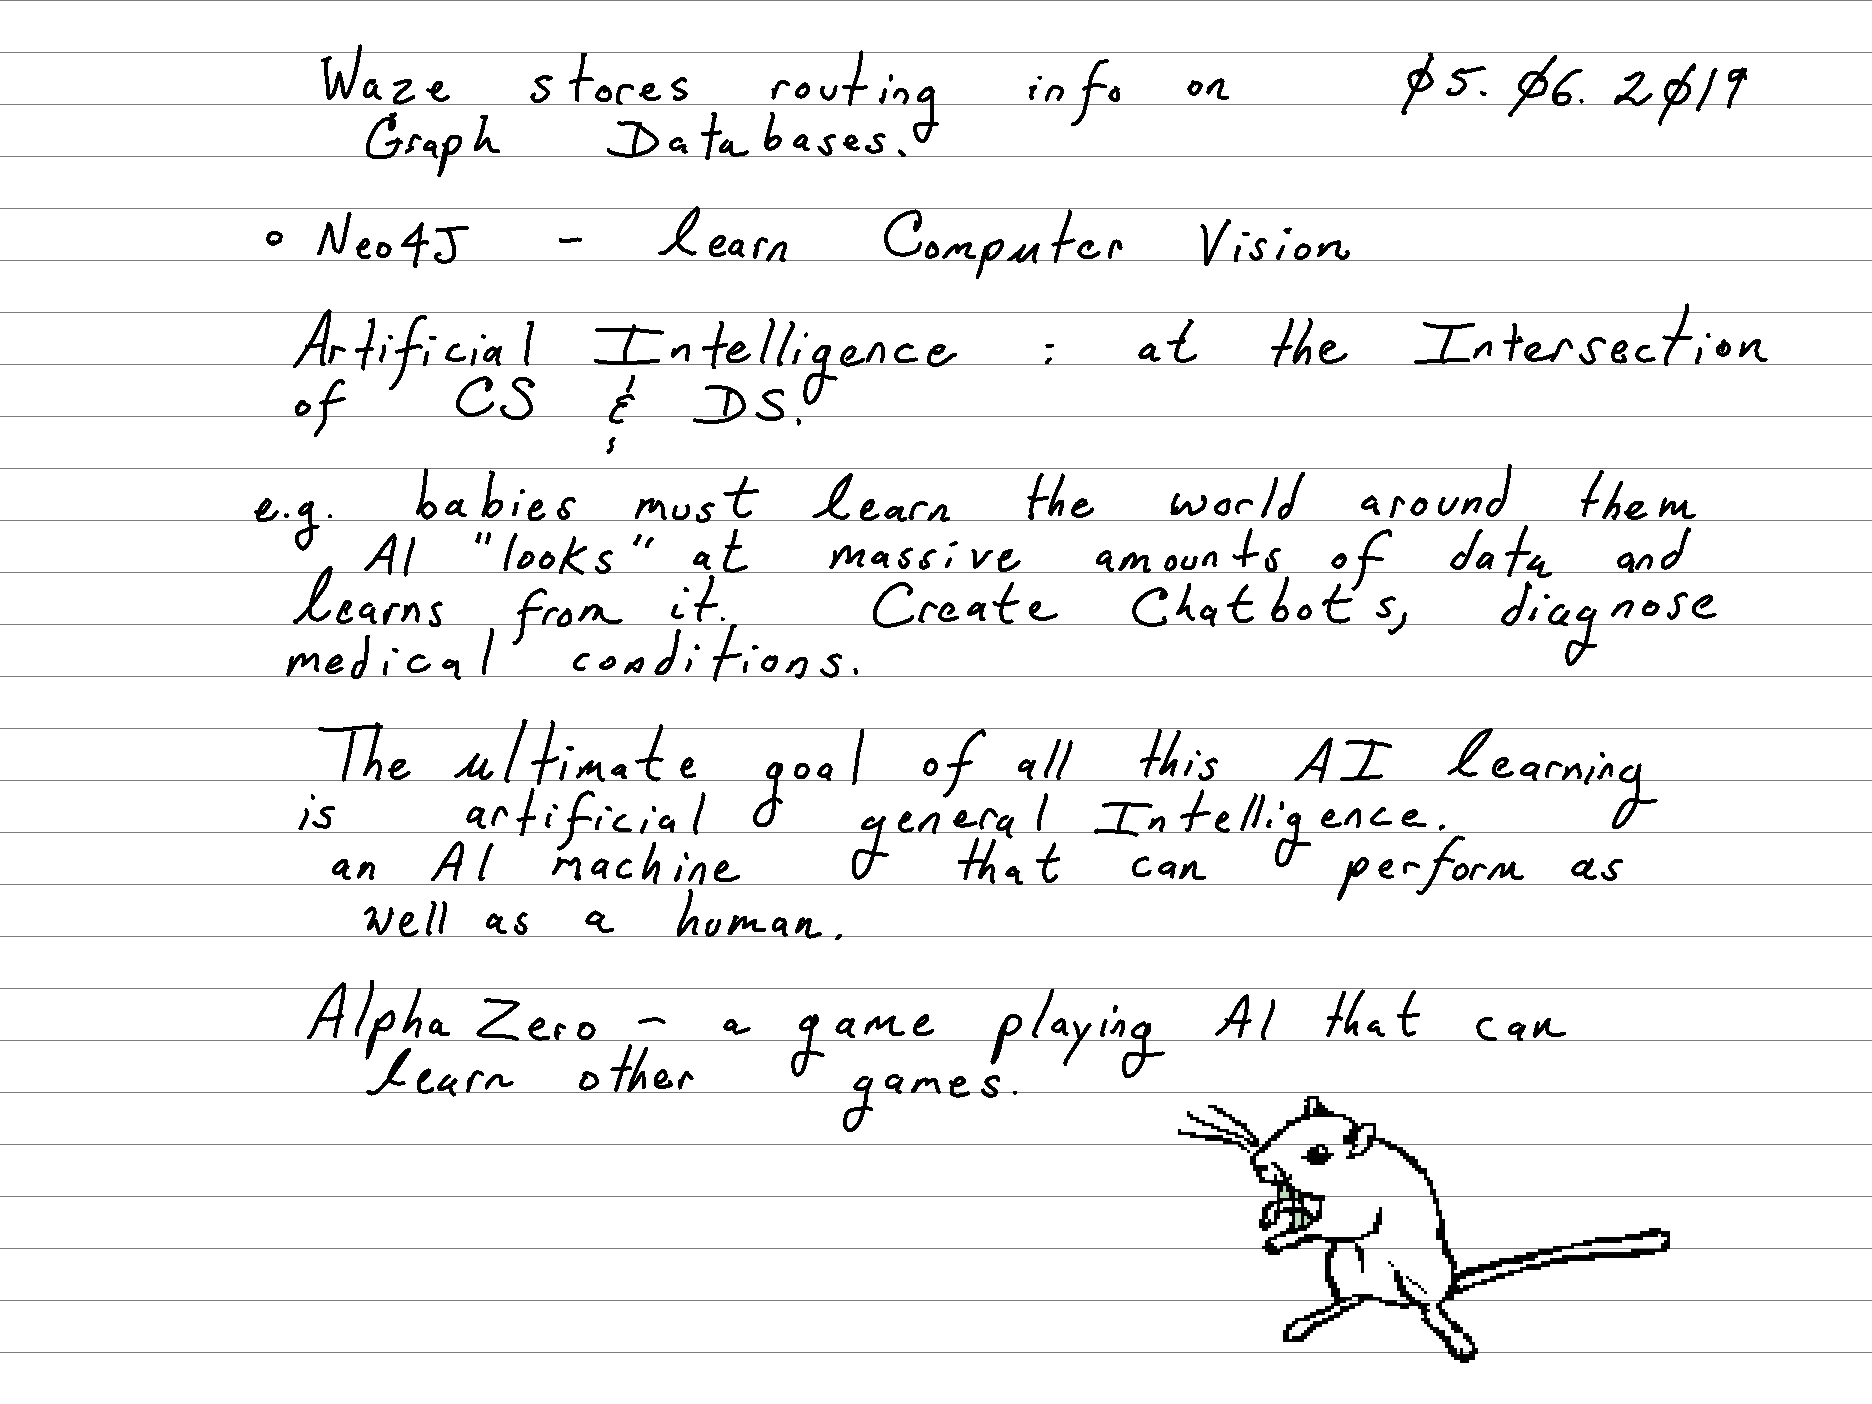 Waze stores routing info on Ø5. Ø6. 2Ø19
Graph Databases.
° Neo4J - learn Computer Vision
Artificial Intelligence : at the Intersection
of CS & DS.
e.g. babies must learn the world around them
AI "looks" at massive amounts of data and
learns from it. Create Chatbots, diagnose
medical conditions.
The ultimate goal of all this AI learning
is artificial general Intelligence.
an AI machine that can perform as
well as a human.
Alpha Zero - a game playing AI that can
learn other games.